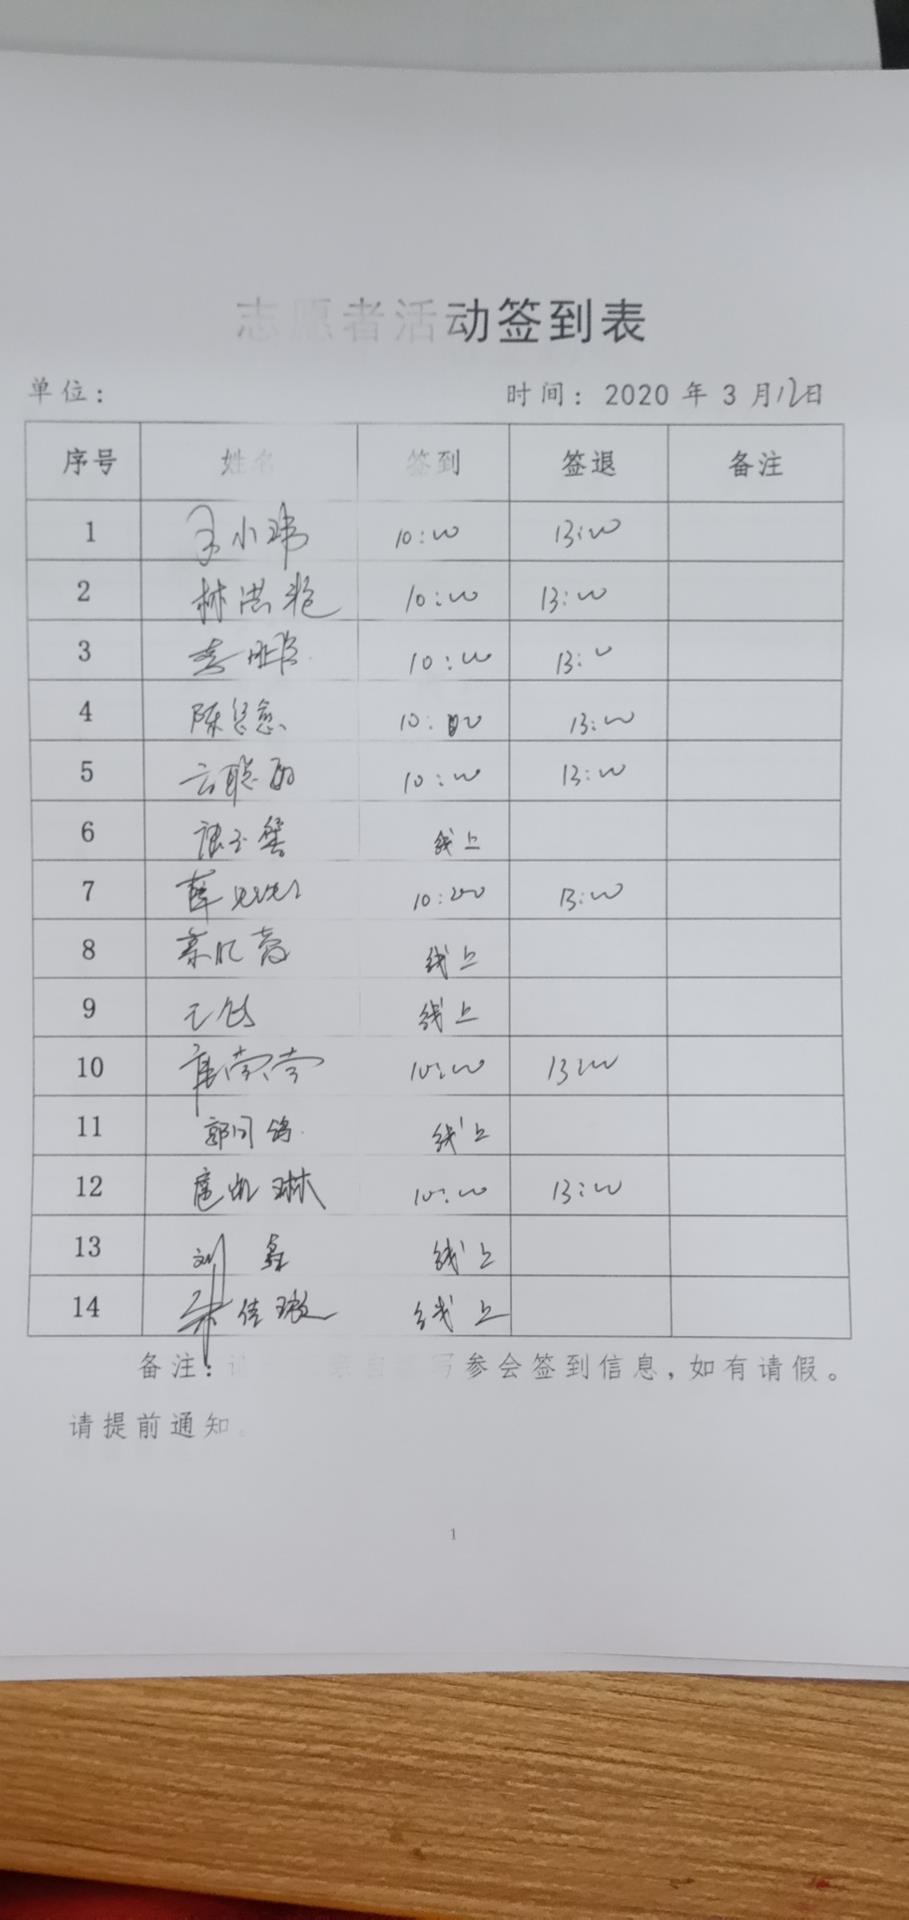 志愿者活动签到表
单位： 时间：2020 年 3 月12日
序号 姓名 签到 签退 备注
1 小玮 10:00 13:00
2 林洪艳 10:00 13:00
3 10:00 13:0
4 陈总急 10:00 13:00
5 云聪 10:00 13:00
6 线上
7 薛 10:00 13:00
8 线上
9 线上
10 10:00 13:00
11 郭同鸽 线上
12 琳 10:00 13:00
13 刘 线上
14 佳璇 线上
备注： 写参会签到信息，如有请假。
请提前通知。
1